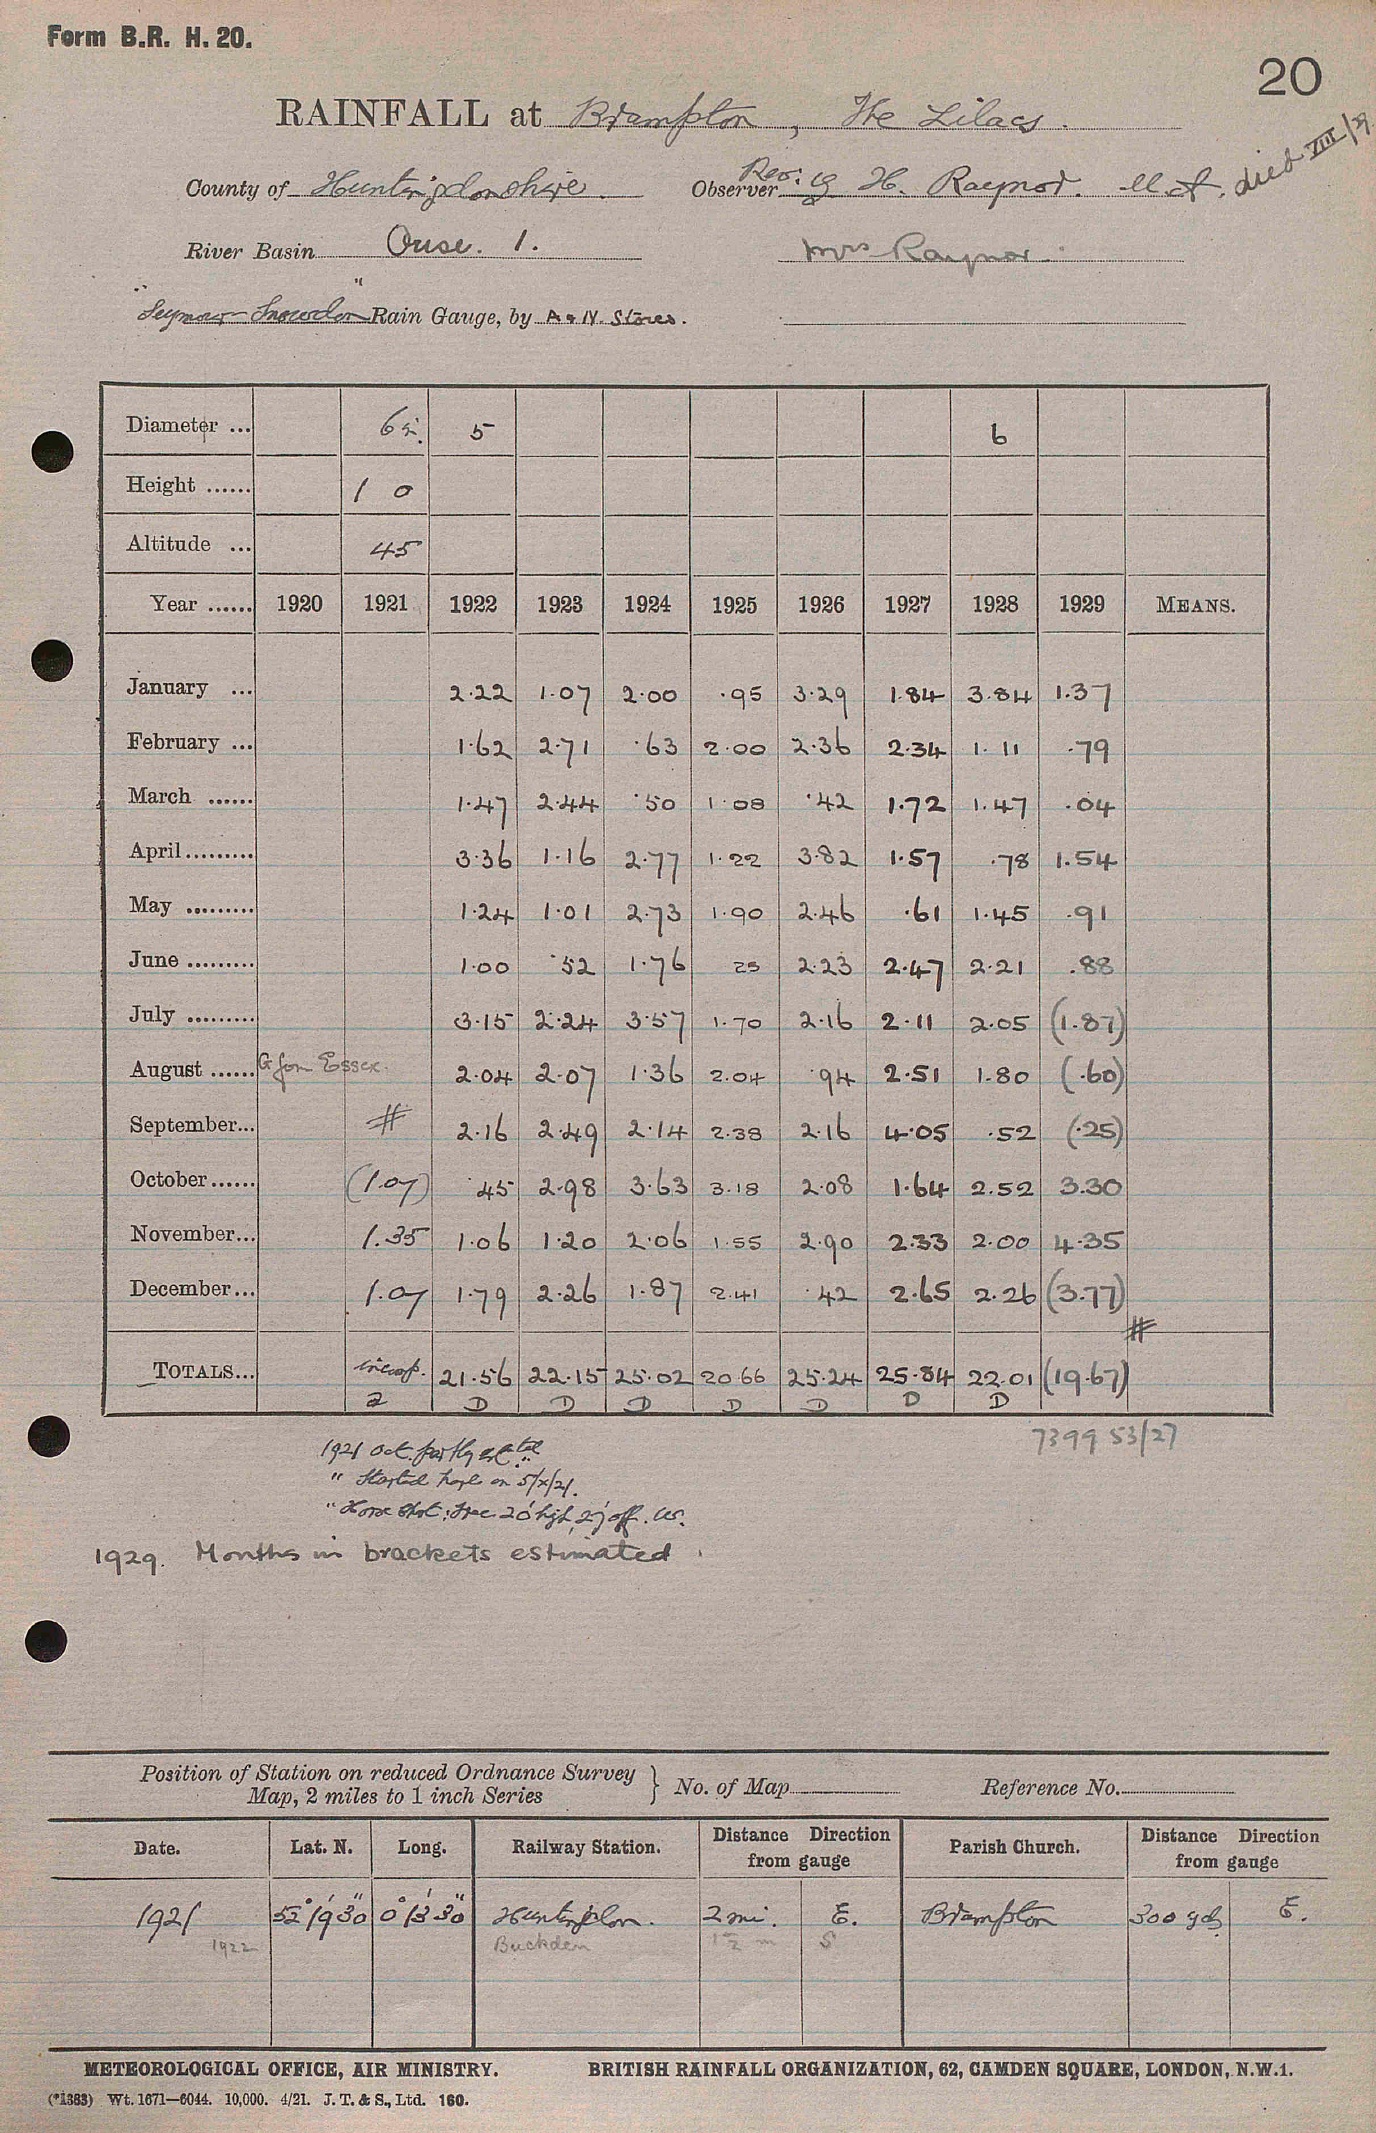 Form B.R. H. 20.
20
RAINFALL at Brampton, The Lilacs.
County of Huntingdonshire. Observer Rev: G H. Raynor. M.A. died VIII/29
River Basin Ouse. 1. Mrs Raynor.
"Seymour Snowdon" Rain Gauge, by A & N. Stores.
Diameter ... 6 5 6
Height ...... 1 0
Altitude ... 45
Year ...... 1920 1921 1922 1923 1924 1925 1926 1927 1928 1929 MEANS.
January ... 2.22 1.07 2.00 .95 3.29 1.84 3.84 1.37
February ... 1.62 2.71 .63 2.00 2.36 2.34 1.11 .79
March ...... 1.47 2.44 .50 1.08 .42 1.72 1.47 .04
April ......... 3.36 1.16 2.77 1.22 3.82 1.57 .78 1.54
May ......... 1.24 1.01 2.73 1.90 2.46 .61 1.45 .91
June ......... 1.00 .52 1.76 25 2.23 2.47 2.21 .88
July ......... 3.15 2.24 3.57 1.70 2.16 2.11 2.05 (1.87)
August ...... G from Essex. 2.04 2.07 1.36 2.04 .94 2.51 1.80 (.60)
September... # 2.16 2.49 2.14 2.38 2.16 4.05 .52 (.25)
October ...... (1.07) .45 2.98 3.63 3.18 2.08 1.64 2.52 3.30
November... 1.35 1.06 1.20 2.06 1.55 2.90 2.33 2.00 4.35
December... 1.07 1.79 2.26 1.87 2.41 .42 2.65 2.26 (3.77)
#
TOTALS... incop. 21.56 22.15 25.02 20.66 25.24 25.84 22.01 (19.67)
a D D D D D D D
7399 53/27
1921 Oct. partly est.
" Started here on 5/x/21.
" tree 20' high, 27' off. W.
1929. Months in brackets estimated.
Position of Station on reduced Ordnance Survey
Map, 2 miles to 1 inch Series } No. of Map Reference No.
Date. Lat. N. Long. Railway Station. Distance Direction from gauge Parish Church. Distance Direction from gauge
1921 52° 19' 30" 0° 13' 30" Huntingdon. 2 mi. E. Brampton 300 yds E.
1922 Buckden 1½ m S
METEOROLOGICAL OFFICE, AIR MINISTRY. BRITISH RAINFALL ORGANIZATION, 62, CAMDEN SQUARE, LONDON, N.W.1.
(*1383) Wt. 1671—6044. 10,000. 4/21. J. T. & S., Ltd. 160.